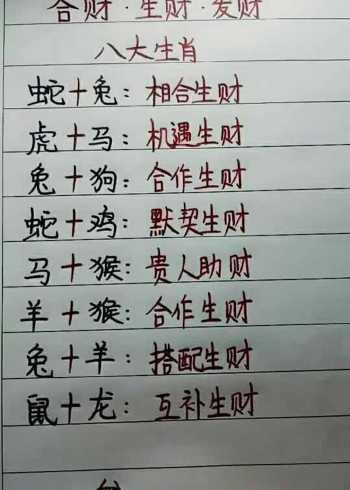 合财·生财·发财
八大生肖
蛇+兔：相合生财
虎+马：机遇生财
兔+狗：合作生财
蛇+鸡：默契生财
马+猴：贵人助财
羊+猴：合作生财
兔+羊：搭配生财
鼠+龙：互补生财